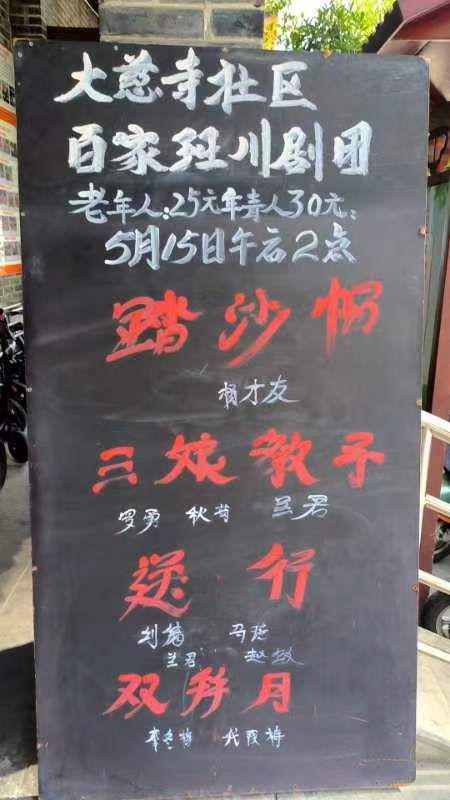 大慈寺社区
百家班川剧团
老年人:25元年青人30元:
5月15日午后2点
踏沙帽
杨才友
三娘教子
罗勇 秋菊 兰君
送行
刘 马
兰君 赵敏
双拜月
李冬梅